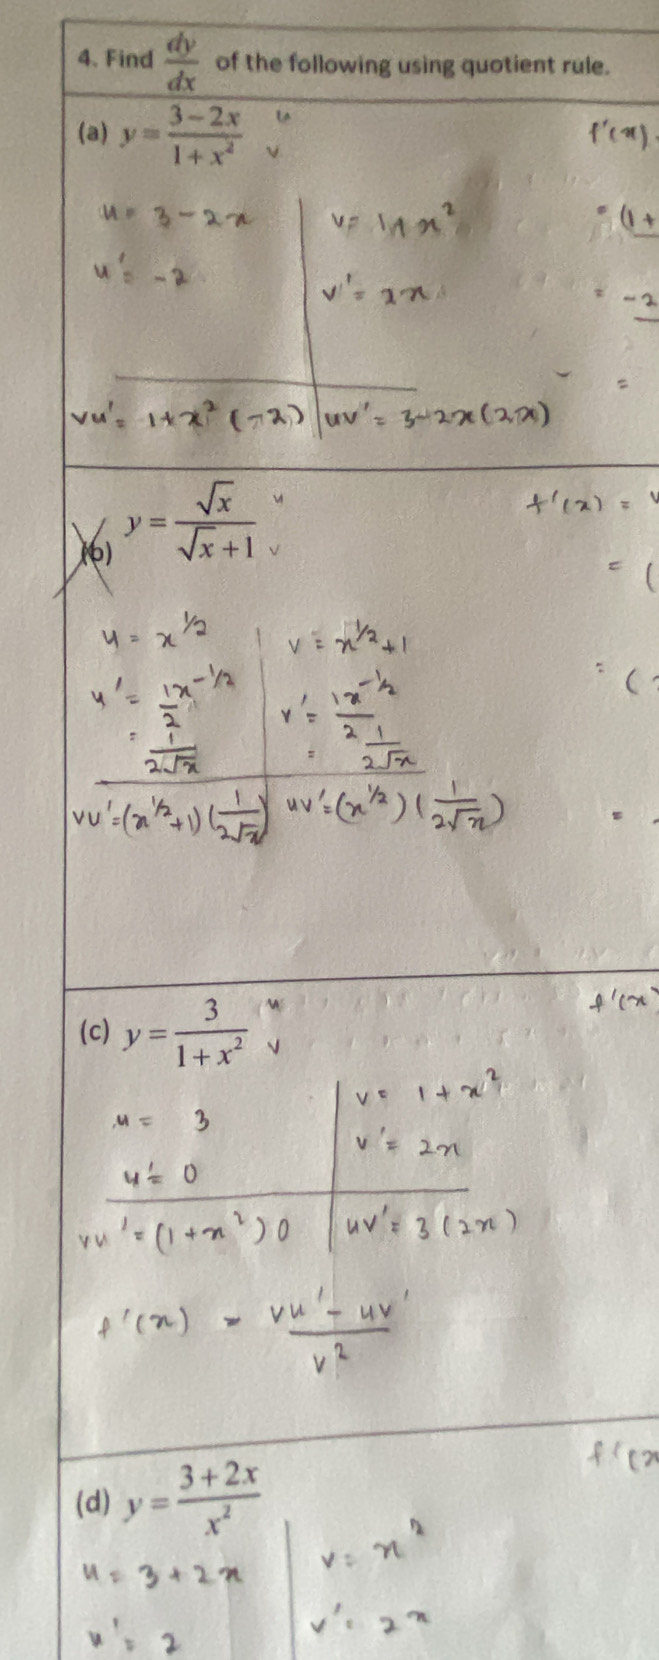 4. Find dy/dx of the following using quotient rule.
(a) y = (3 − 2x)/(1 + x²) u v
f'(x)
u = 3 − 2x
v = 1 + x²
= (1 +
u' = −2
v' = 2x
= −2
=
vu' = 1 + x² (−2)
uv' = 3 − 2x (2x)
(b) y = √x/(√x + 1) u v
f'(x) = v
= (
u = x^1/2
v = x^1/2 + 1
u' = 1x^−1/2 / 2
v' = 1x^−1/2 / 2
= (
= 1/(2√x)
= 1/(2√x)
vu' = (x^1/2 + 1)(1/(2√x))
uv' = (x^1/2)(1/(2√x))
=
(c) y = 3/(1 + x²) u v
f'(x)
u = 3
v = 1 + x²
u' = 0
v' = 2x
vu' = (1 + x²) 0
uv' = 3 (2x)
f'(x) = (vu' − uv')/v²
(d) y = (3 + 2x)/x²
f'(x
u = 3 + 2x
v = x²
u' = 2
v' = 2x